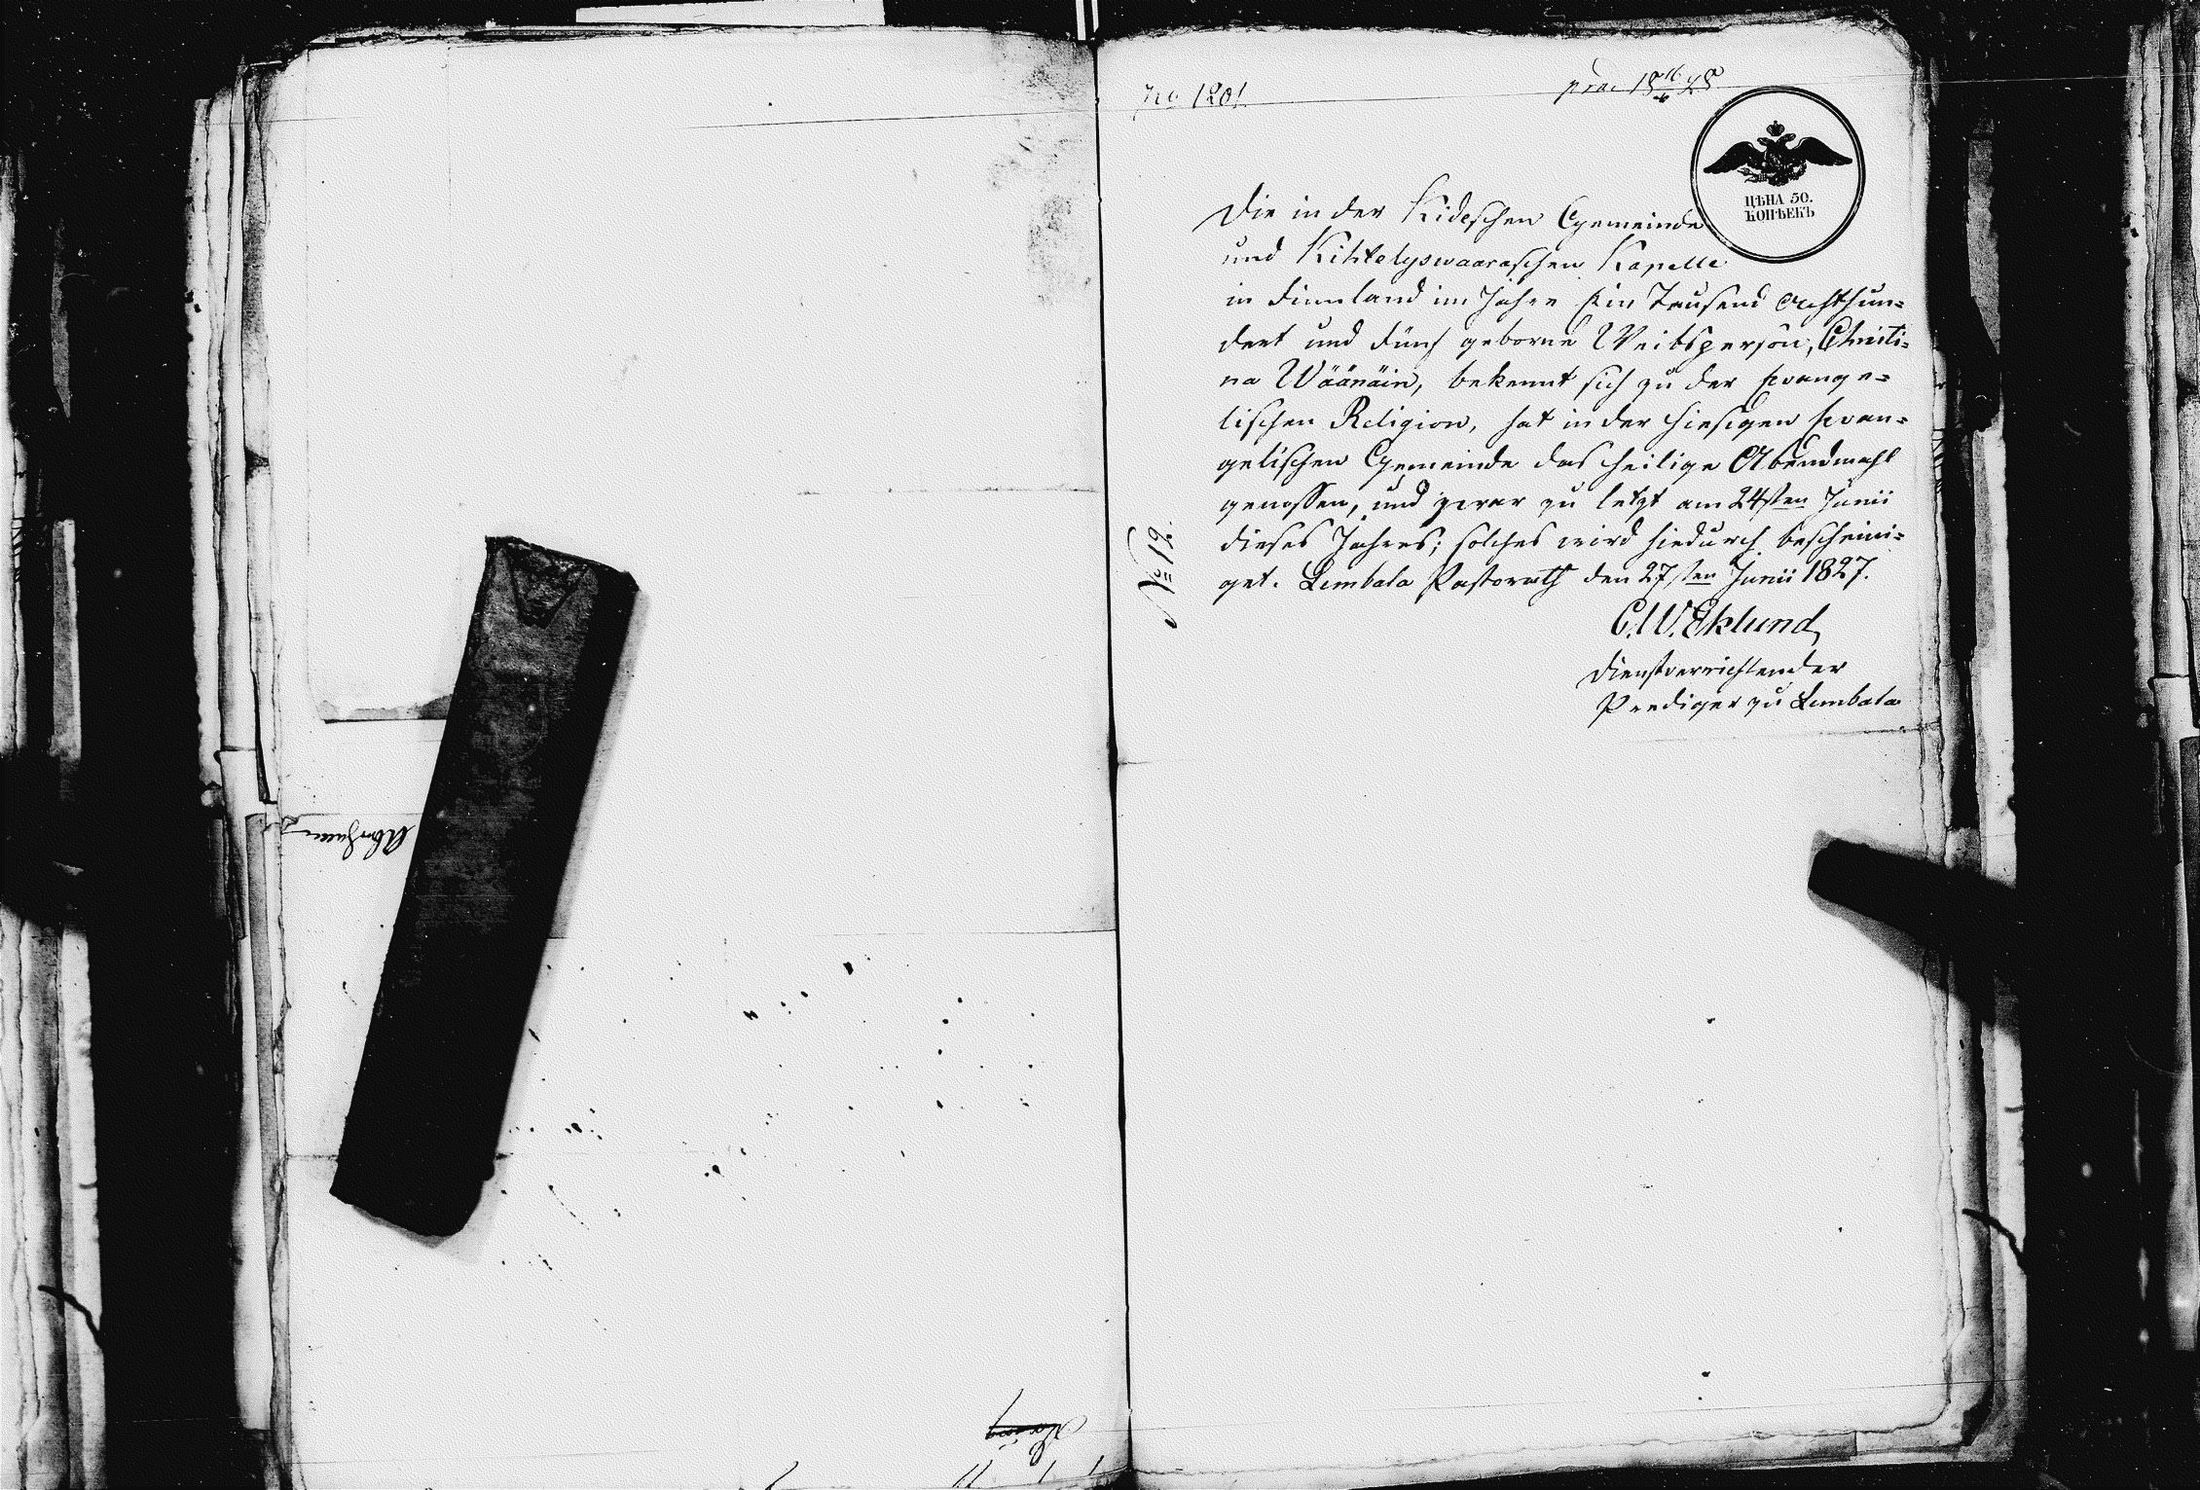 No 1201.
ЦѢНА 50.
КОПѢЕКЪ
Die in der Kideschen Gemeinde
und Kihtelyswaaraschen Kapelle
in Finnland im Jahre Ein Tausend Achthun=
dert und Fünf geborne Weibsperson, Christi=
na Wäänäin, bekennt sich zu der Evange=
lischen Religion, hat in der hiesigen Evan=
gelischen Gemeinde das heilige Abendmahl
genossen, und zwar zu letzt am 24sten Junii
dieses Jahres; solches wird hiedurch bescheini=
get. Lembala Pastorath den 27sten Junii 1827.
C. W. Eklund,
Dienstverrichtender
Prediger zu Lembala
No 19.